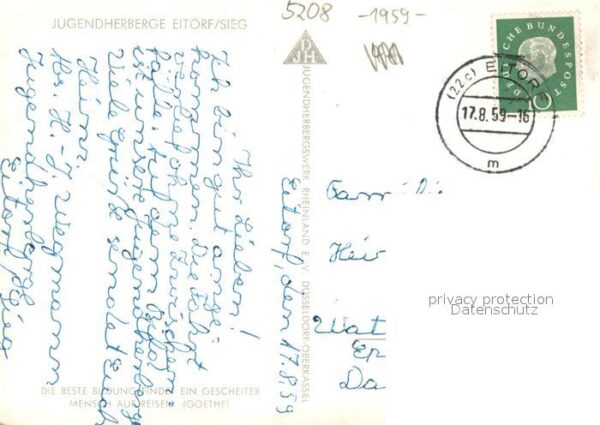 JUGENDHERBERGE EITORF/SIEG
5208 -1959-
DJH
JUGENDHERBERGSWERK RHEINLAND E. V. DÜSSELDORF-OBERKASSEL
DEUTSCHE BUNDESPOST
10
(22c) EITORF
17.8.59-16
m
Eitorf, den 17.8.59
Ihr Lieben!
Ich bin gut ange-
kommen. Die Fahrt
verlief ohne Zwischen
fälle. Auf dem Bild
ist unsere Jugendherberge
Viele Grüße sendet Euch
Heinz
Jugendherberge
Eitorf/Sieg
Familie
Hei
Wat
Ep
Da
privacy protection
Datenschutz
DIE BESTE BILDUNG FINDET EIN GESCHEITER
MENSCH AUF REISEN (GOETHE)